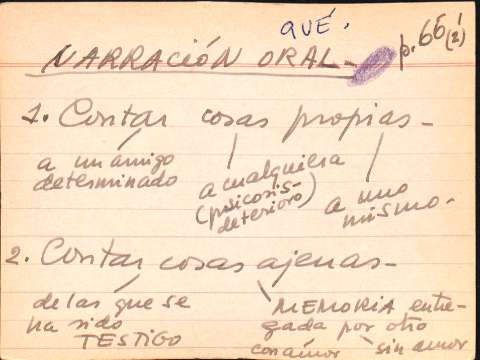 QUÉ.
NARRACIÓN ORAL- p. 66 (2)
1. Contar cosas propias-
a un amigo
determinado
a cualquiera
(psicosis-
deterioro)
a uno
mismo.
2. Contar cosas ajenas-
de las que se
ha sido
TESTIGO
MEMORIA entre-
gada por otro
con amor sin amor